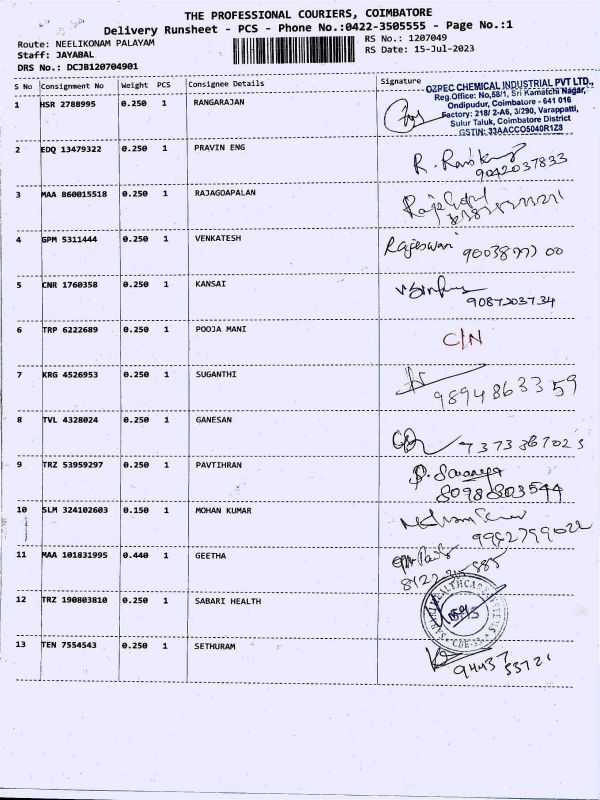 THE PROFESSIONAL COURIERS, COIMBATORE
Delivery Runsheet - PCS - Phone No.:0422-3505555 - Page No.:1
Route: NEELIKONAM PALAYAM
RS No.: 1207049
Staff: JAYABAL
RS Date: 15-Jul-2023
DRS No.: DCJB120704901
S No Consignment No Weight PCS Consignee Details Signature
1 HSR 2788995 0.250 1 RANGARAJAN
OZPEC CHEMICAL INDUSTRIAL PVT LTD.,
Reg.Office: No,58/1, Sri Kamatchi Nagar,
Ondipudur, Coimbatore - 641 016
Factory: 218/ 2-A6, 3/290, Varappatti,
Sulur Taluk, Coimbatore District
GSTIN: 33AACCO5040R1Z8
2 EDQ 13479322 0.250 1 PRAVIN ENG
9042037833
3 MAA 860015518 0.250 1 RAJAGOAPALAN
4 GPM 5311444 0.250 1 VENKATESH Rajeswari
5 CNR 1760358 0.250 1 KANSAI
9087203734
6 TRP 6222689 0.250 1 POOJA MANI C/N
7 KRG 4526953 0.250 1 SUGANTHI
9894863359
8 TVL 4328024 0.250 1 GANESAN
7373367023
9 TRZ 53959297 0.250 1 PAVTIHRAN
8098803544
10 SLM 324102603 0.150 1 MOHAN KUMAR
9952799022
11 MAA 101831995 0.440 1 GEETHA
12 TRZ 190803810 0.250 1 SABARI HEALTH
13 TEN 7554543 0.250 1 SETHURAM
94437 53721